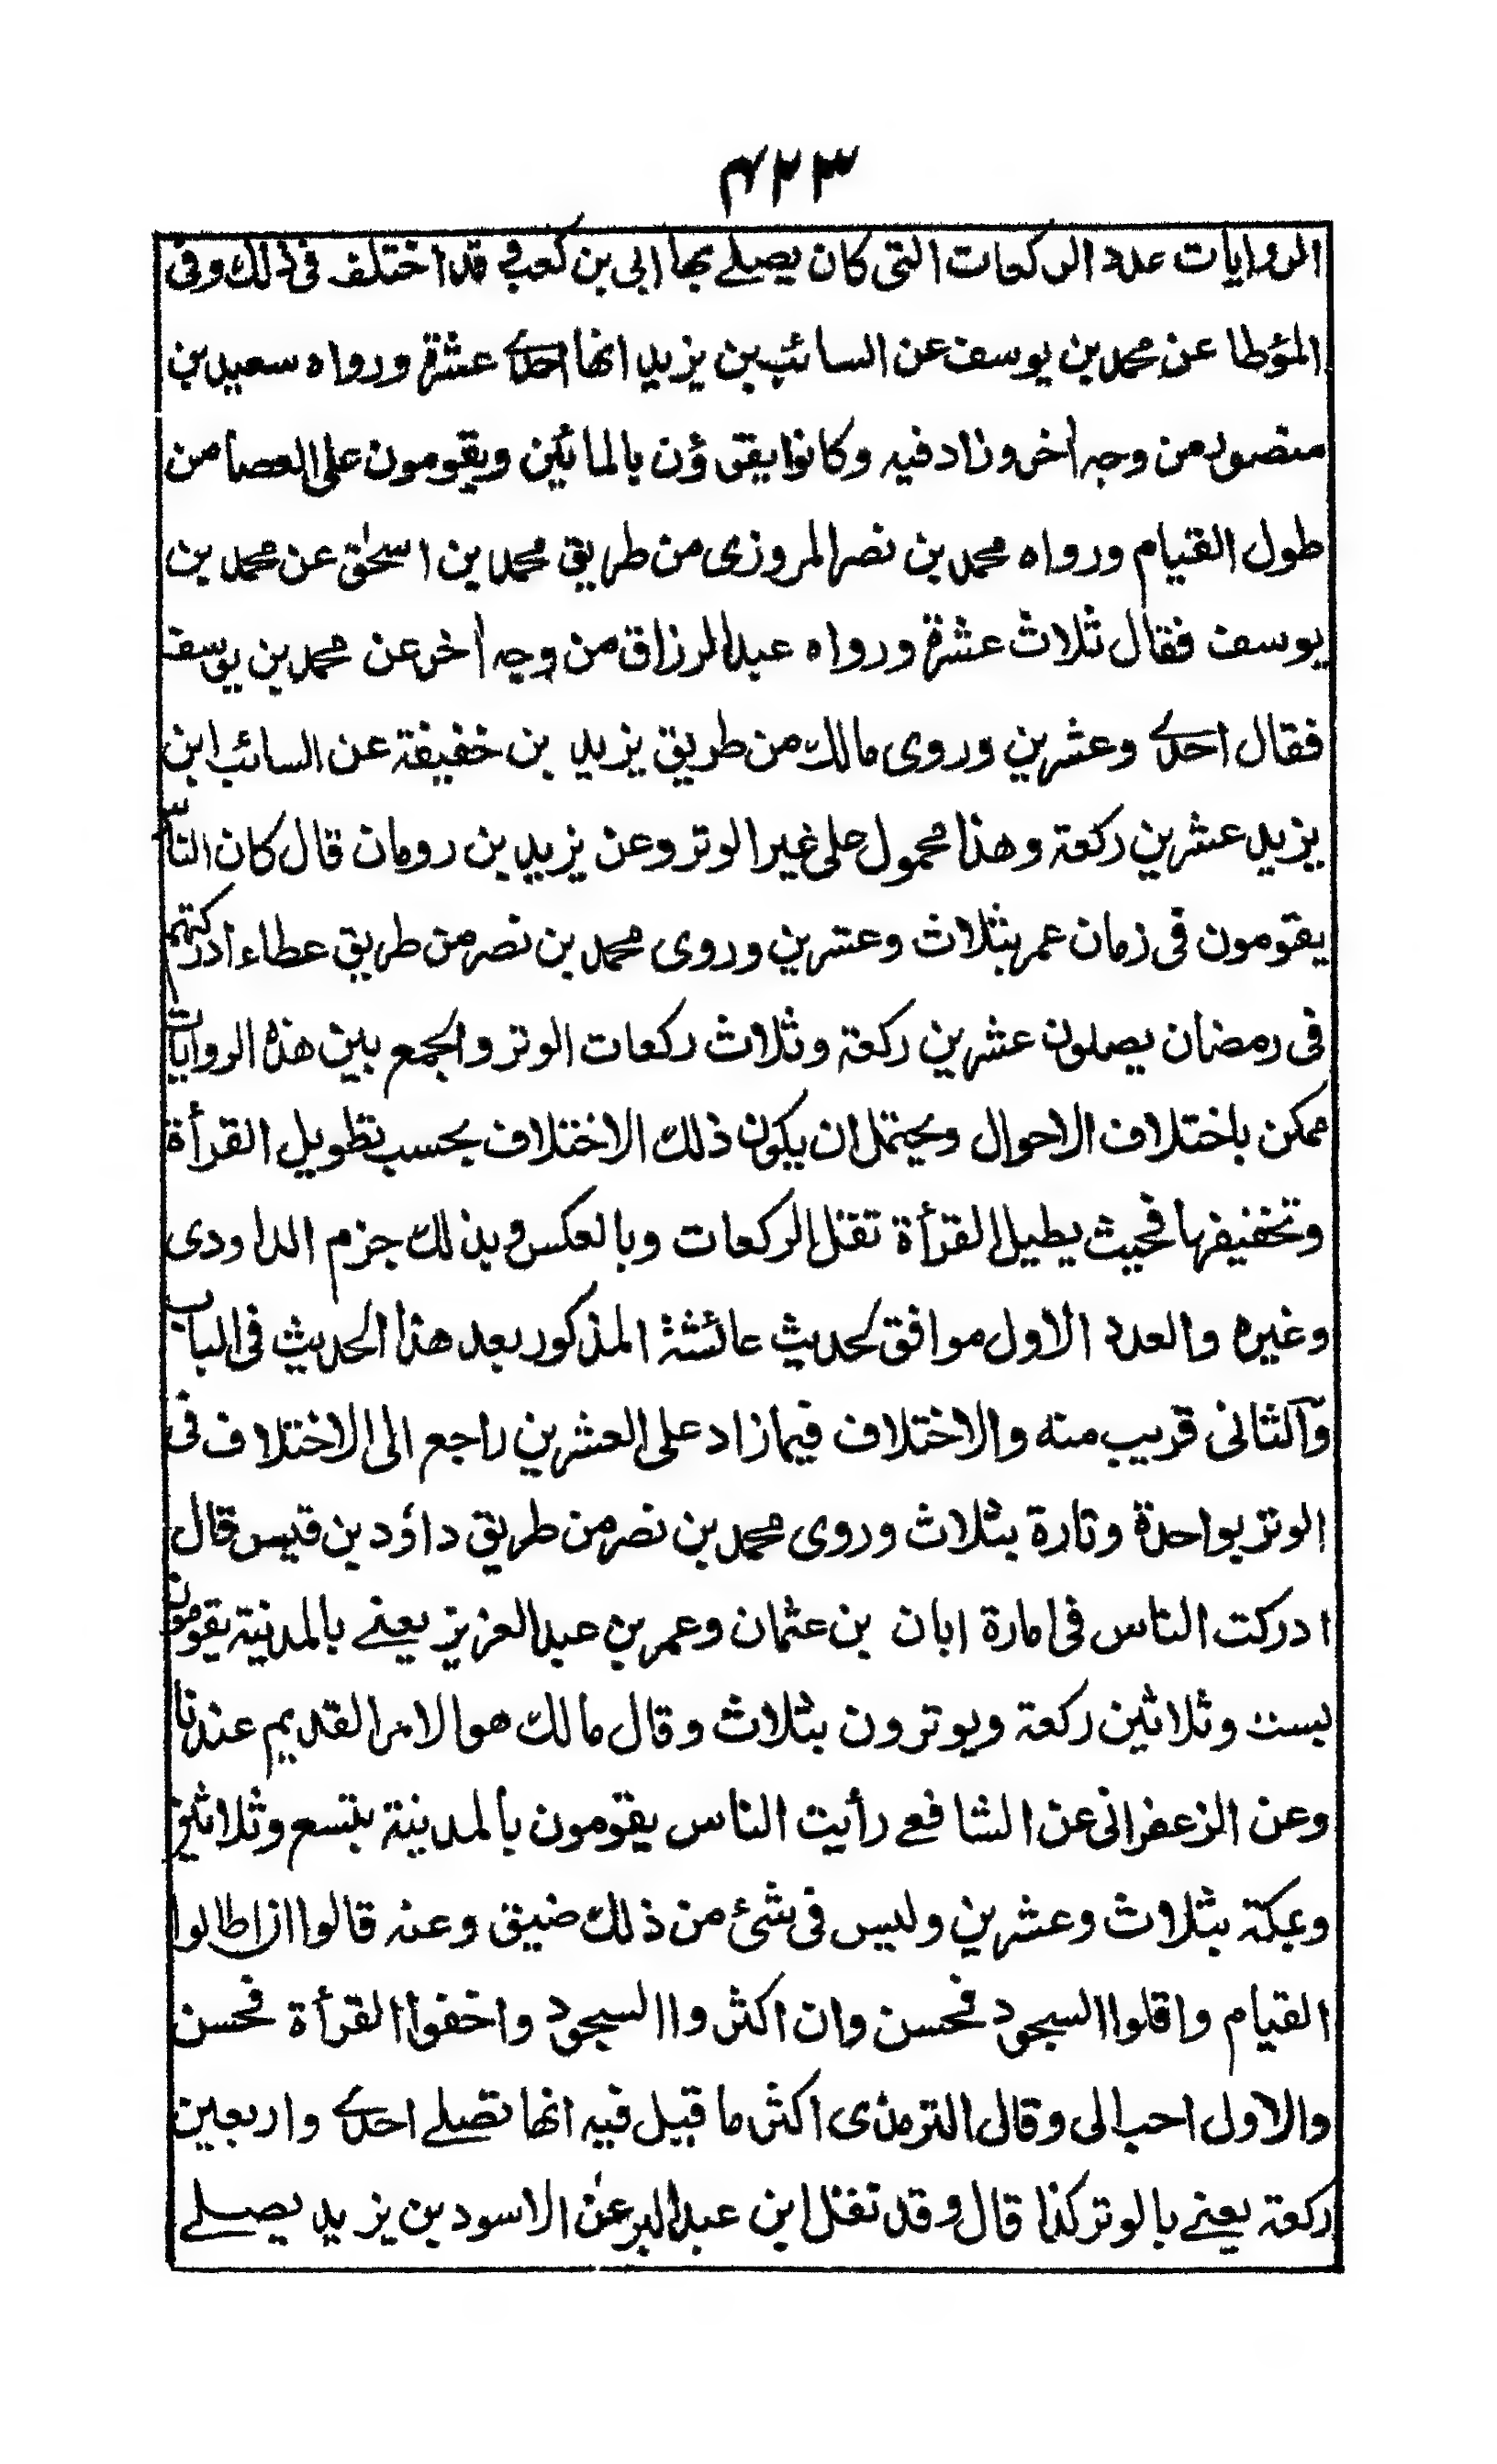 ۴۲۳
الروايات عدد الركعات التى كان يصلے بها ابى بن كعب و قد اختلف فى ذلك وفى
المؤطا عن محمد بن يوسف عن السائب بن يزيد انها احدے عشرة ورواه سعيد بن
منصور من وجه اٰخر وزاد فيه وكانوا يقرؤن بالمائين ويقومون على العصا من
طول القيام ورواه محمد بن نصر المروزى من طريق محمد بن اسحٰق عن محمد بن
يوسف فقال ثلاث عشرة ورواه عبد الرزاق من وجه اٰخر عن محمد بن يوسف
فقال احدے وعشرين وروى مالك من طريق يزيد بن خفيفة عن السائب ابن
يزيد عشرين ركعة وهذا محمول على غير الوتر وعن يزيد بن رومان قال كان الناس
يقومون فى زمان عمر بثلاث وعشرين وروى محمد بن نصر من طريق عطاء ادركتهم
فى رمضان يصلون عشرين ركعة وثلاث ركعات الوتر والجمع بين هذه الروايات
ممكن باختلاف الاحوال ويحتمل ان يكون ذلك الاختلاف بحسب تطويل القرأة
وتخفيفها فحيث يطيل القرأة تقل الركعات وبالعكس وبذلك جزم الداودى
وغيره والعدد الاول موافق لحديث عائشة المذكور بعد هذا الحديث فى الباب
وآلثانى قريب منه والاختلاف فيما زاد على العشرين راجع الى الاختلاف فى
الوتر بواحدة وتارة بثلاث وروى محمد بن نصر من طريق داؤد بن قيس قال
ادركت الناس فى امارة ابان بن عثمان وعمر بن عبد العزيز يعنے بالمدنية يقومون
بست وثلاثين ركعة ويوترون بثلاث وقال مالك هو الامر القديم عندنا
وعن الزعفرانى عن الشافعے رأيت الناس يقومون بالمدينة بتسع وثلاثين
وبمكة بثلاث وعشرين وليس فى شئ من ذلك ضيق وعنه قالوا ان اطالوا
القيام واقلوا السجود فحسن وان اكثروا السجود واخفوا القرأة فحسن
والاول احب الى وقال الترمذى اكثر ما قيل فيه انها تصلے احدے واربعين
ركعة يعنے بالوتر كذا قال وقد نقل ابن عبد البر عن الاسود بن يزيد يصلے